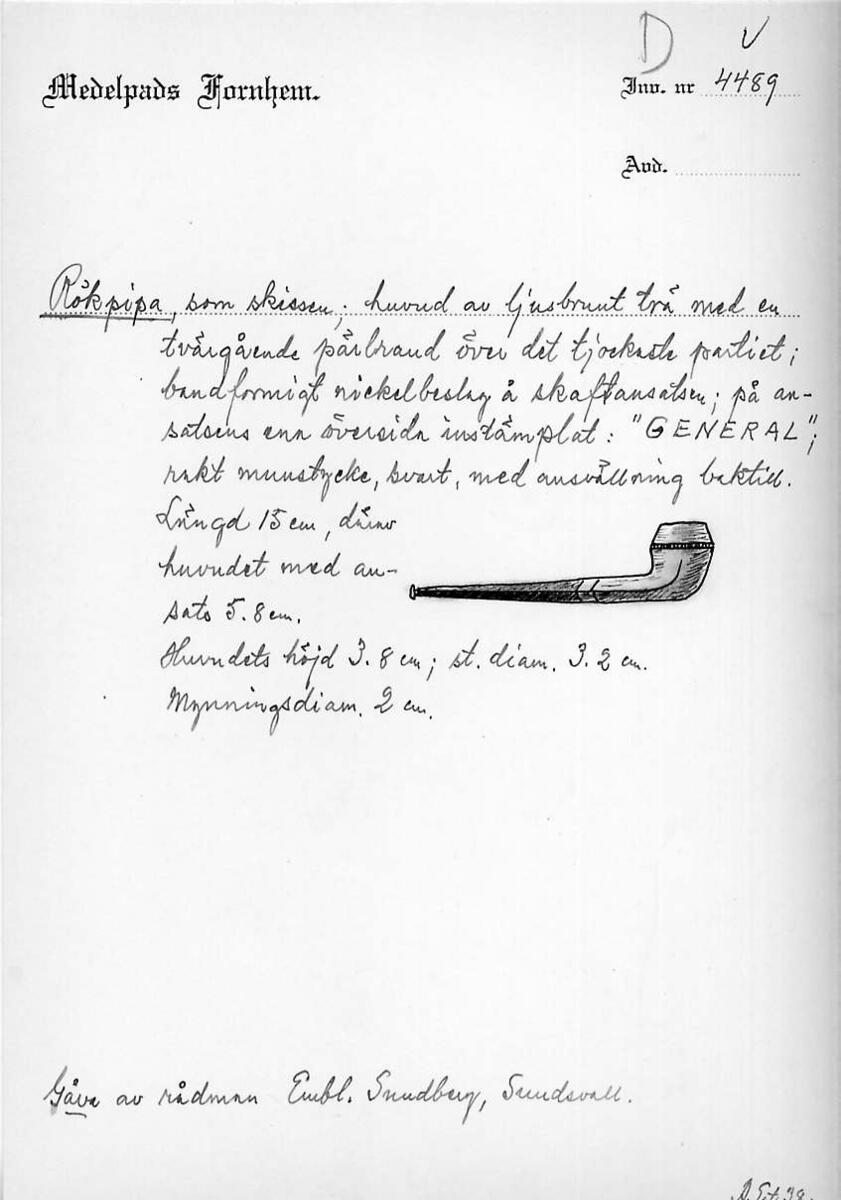 D V
Medelpads Fornhem.
Inv. nr 4489
Avd.
Rökpipa, som skissen; huvud av ljusbrunt trä med en
tvärgående pärlrand över det tjockaste partiet;
bandformigt nickelbeslag å skaftansatsen; på an-
satsens ena översida instämplat: "GENERAL";
rakt munstycke, svart, med ansvällning baktill.
Längd 15 cm, därav
huvudet med an-
sats 5.8 cm.
Huvudets höjd 3.8 cm; st. diam. 3.2 cm.
Mynningsdiam. 2 cm.
Gåva av rådman Sundberg, Sundsvall.